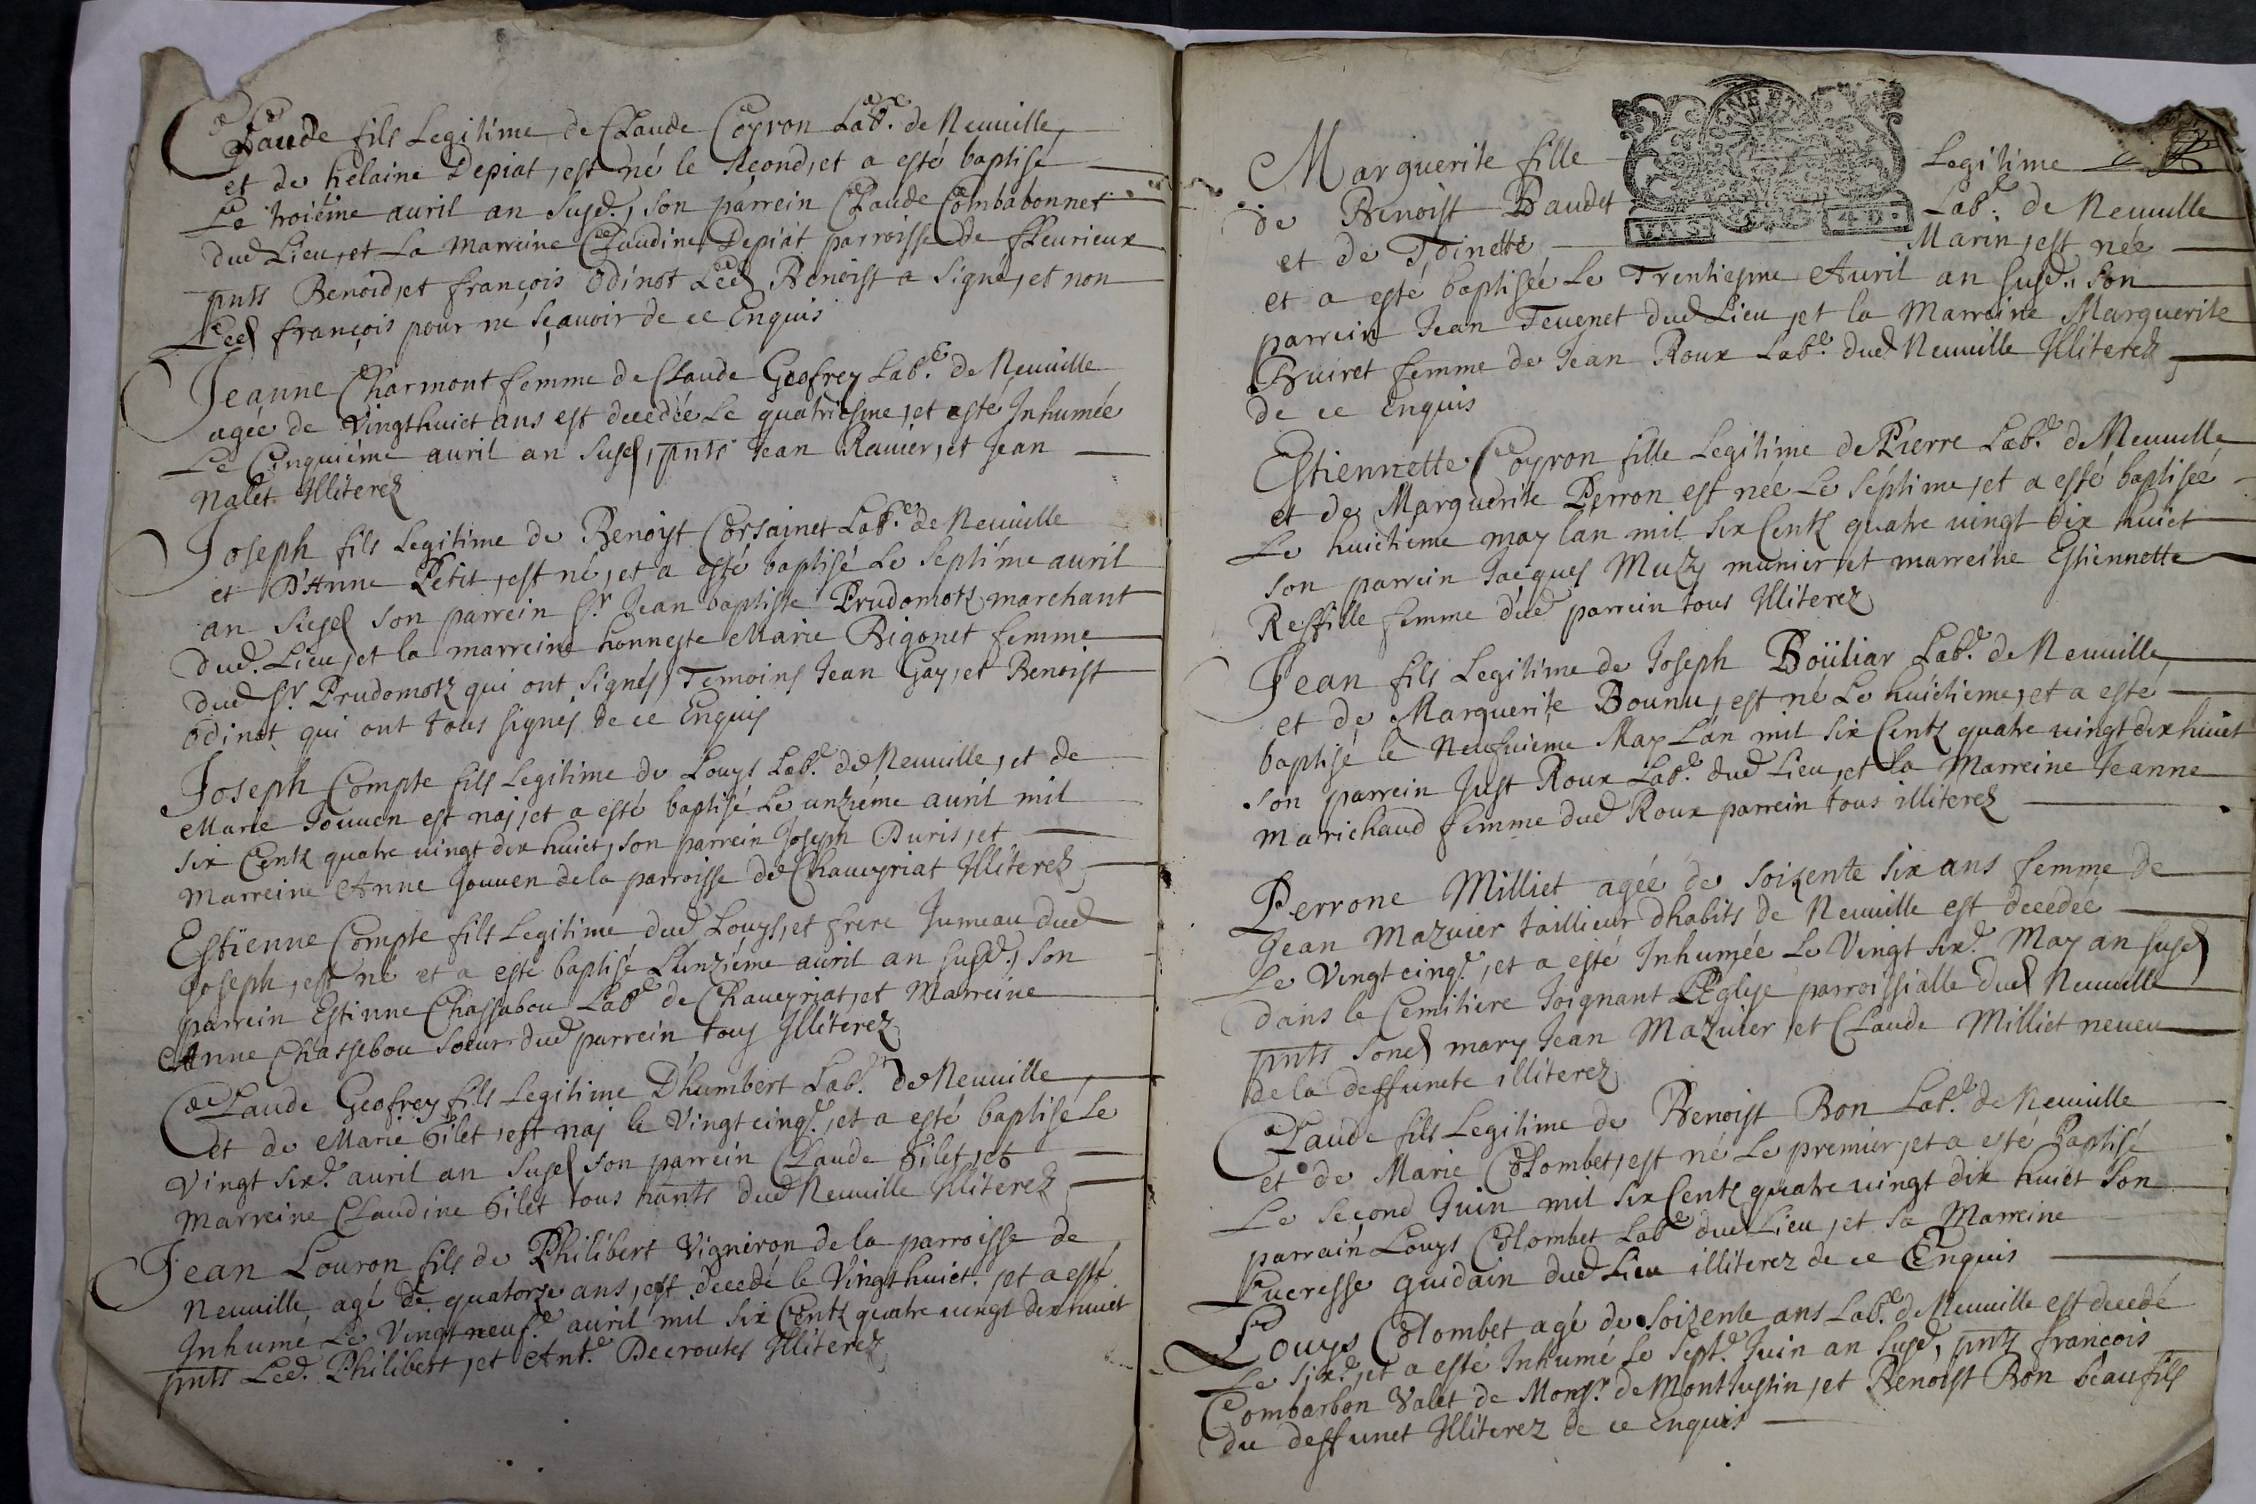 Claude fils Legitime de Claude Coyron Lab.r de Neuuille
et de helaine Depiat, est né le second, et a esté baptisé
Le troiéme auril an susd., son parrein Claude Combabonnet
dud Lieu, et La Marreine Claudine Depiat parroisse de fleurieux
pnts Benoid, et françois Odinot Led Benoist a signé, et non
Led françois pour ne sçauoir de ce Enquis
Jeanne Charmont femme de Claude Geofrey Lab.r de Neuuille
agée de Vingthuict ans est decedée Le quatriesme, et esté Inhumée
Le Cinquiéme auril an Susd, pnts Jean Rauier, et Jean
Nalet Illiterez
Joseph fils Legitime de Benoist Corsainet Lab.r de Neuuille
et D'Anne Petit, est né, et a esté baptisé Le Septiéme auril
an Susd son parrein Sr Jean baptiste Prudomotz marchant
dud. Lieu, et la marreine honneste Marie Bigonet femme
dud Sr Prudomotz qui ont signés, Temoins Jean Gay, et Benoist
Odinot qui ont tous signés de ce Enquis
Joseph Compte fils Legitime de Louys Lab.r de Neuuille, et de
Marie Jouuen est naj, et a esté baptisé Le unziéme auril mil
six Centz quatre uingt dix huict, son parrein Joseph Buris, et
Marreine Anne Jouuen de la parroisse de Chaueyriat Illiterez
Estienne Compte fils Legitime dud Louys, et frere Jumeau dud
Joseph, est né et a esté baptisé L'unziéme auril an susd., son
parrein Estinne Chassabou Lab.r de Chaueyriat, et Marreine
Anne Chassebou soeur dud parrein tous Illiterez
Claude Geofrey fils Legitime D'humbert Lab.r de Neuuille
et de Marie Gilet, est naj le Vingt cinq.e, et a esté baptisé Le
Vingt six.e auril an Susd son parrein Claude Gilet, et
Marreine Claudine Gilet tous hants dud Neuuille Illiterez
Jean Louron fils de Philibert Vigneron de la parroisse de
Neuuille agé de quatorze ans, est decedé le Vingthuict. et a esté
Inhumé Le Vingtneuf.e auril mil six Centz quatre uingt dix huict
pnts Led. Philibert, et Ant.e Decroutes Illiterez
Marguerite fille Legitime
de Benoist Baudet Lab.r de Neuuille
et de Toinette Marin, est née
et a esté baptisée Le Trentiesme Auril an susd., son
parrein Jean Teuenet dud Lieu, et la Marreine Marguerite
Bruiret femme de Jean Roux Lab.r dud Neuuille Illiterez
de ce Enquis
Estiennette Coyron fille Legitime de Pierre Lab.r de Neuuille
et de Marguerite Perron est née Le séptime, et a esté baptisée
Le huictieme may lan mil six Centz quatre uingt dix huict
son parrein Jacques Muzy munier et marreine Estiennette
Reffille femme dud parrein tous Illiterez
Jean fils Legitime de Joseph Boüliar Lab.r de Neuuille
et de Marguerite Bounu, est né Le huictieme, et a esté
baptisé le Neufuieme May Lán mil six Centz quatre uingt dix huict
son parrein Just Roux Lab.r dud Lieu, et la Marreine Jeanne
Marichaud femme dud Roux parrein tous illiterez
Perrone Milliet agée de soizente six ans femme de
Jean Mazuier taillieur dhabits de Neuuille est decedée
Le Vingt cinq.e, et a esté Inhumée Le Vingt six.e May an susd
dans le Cemitiere Joignant L'Eglise parroissialle dud Neuuille
pnts Sond mary Jean Mazuier, et Claude Milliet neueu
de la deffuncte illiterez
Claude fils Legitime de Benoist Bon Lab.r de Neuuille
et de Marie Colombet, est né Le premier, et a esté baptisé
Le second Juin mil six Centz quatre uingt dix huict son
parrain Louys Colombet Lab.r dud Lieu, et sa Marreine
Lucresse guidain dud Lieu illiterez de ce Enquis
Louys Colombet agé de soizente ans Lab.r de Neuuille est decedé
Le six.e, et a esté Inhumé le sept.e Juin an susd, pnts françois
Combarbon Valet de Monsr. de Montjustin, et Benoist Bon beaufils
du deffunct Illiterez de ce Enquis